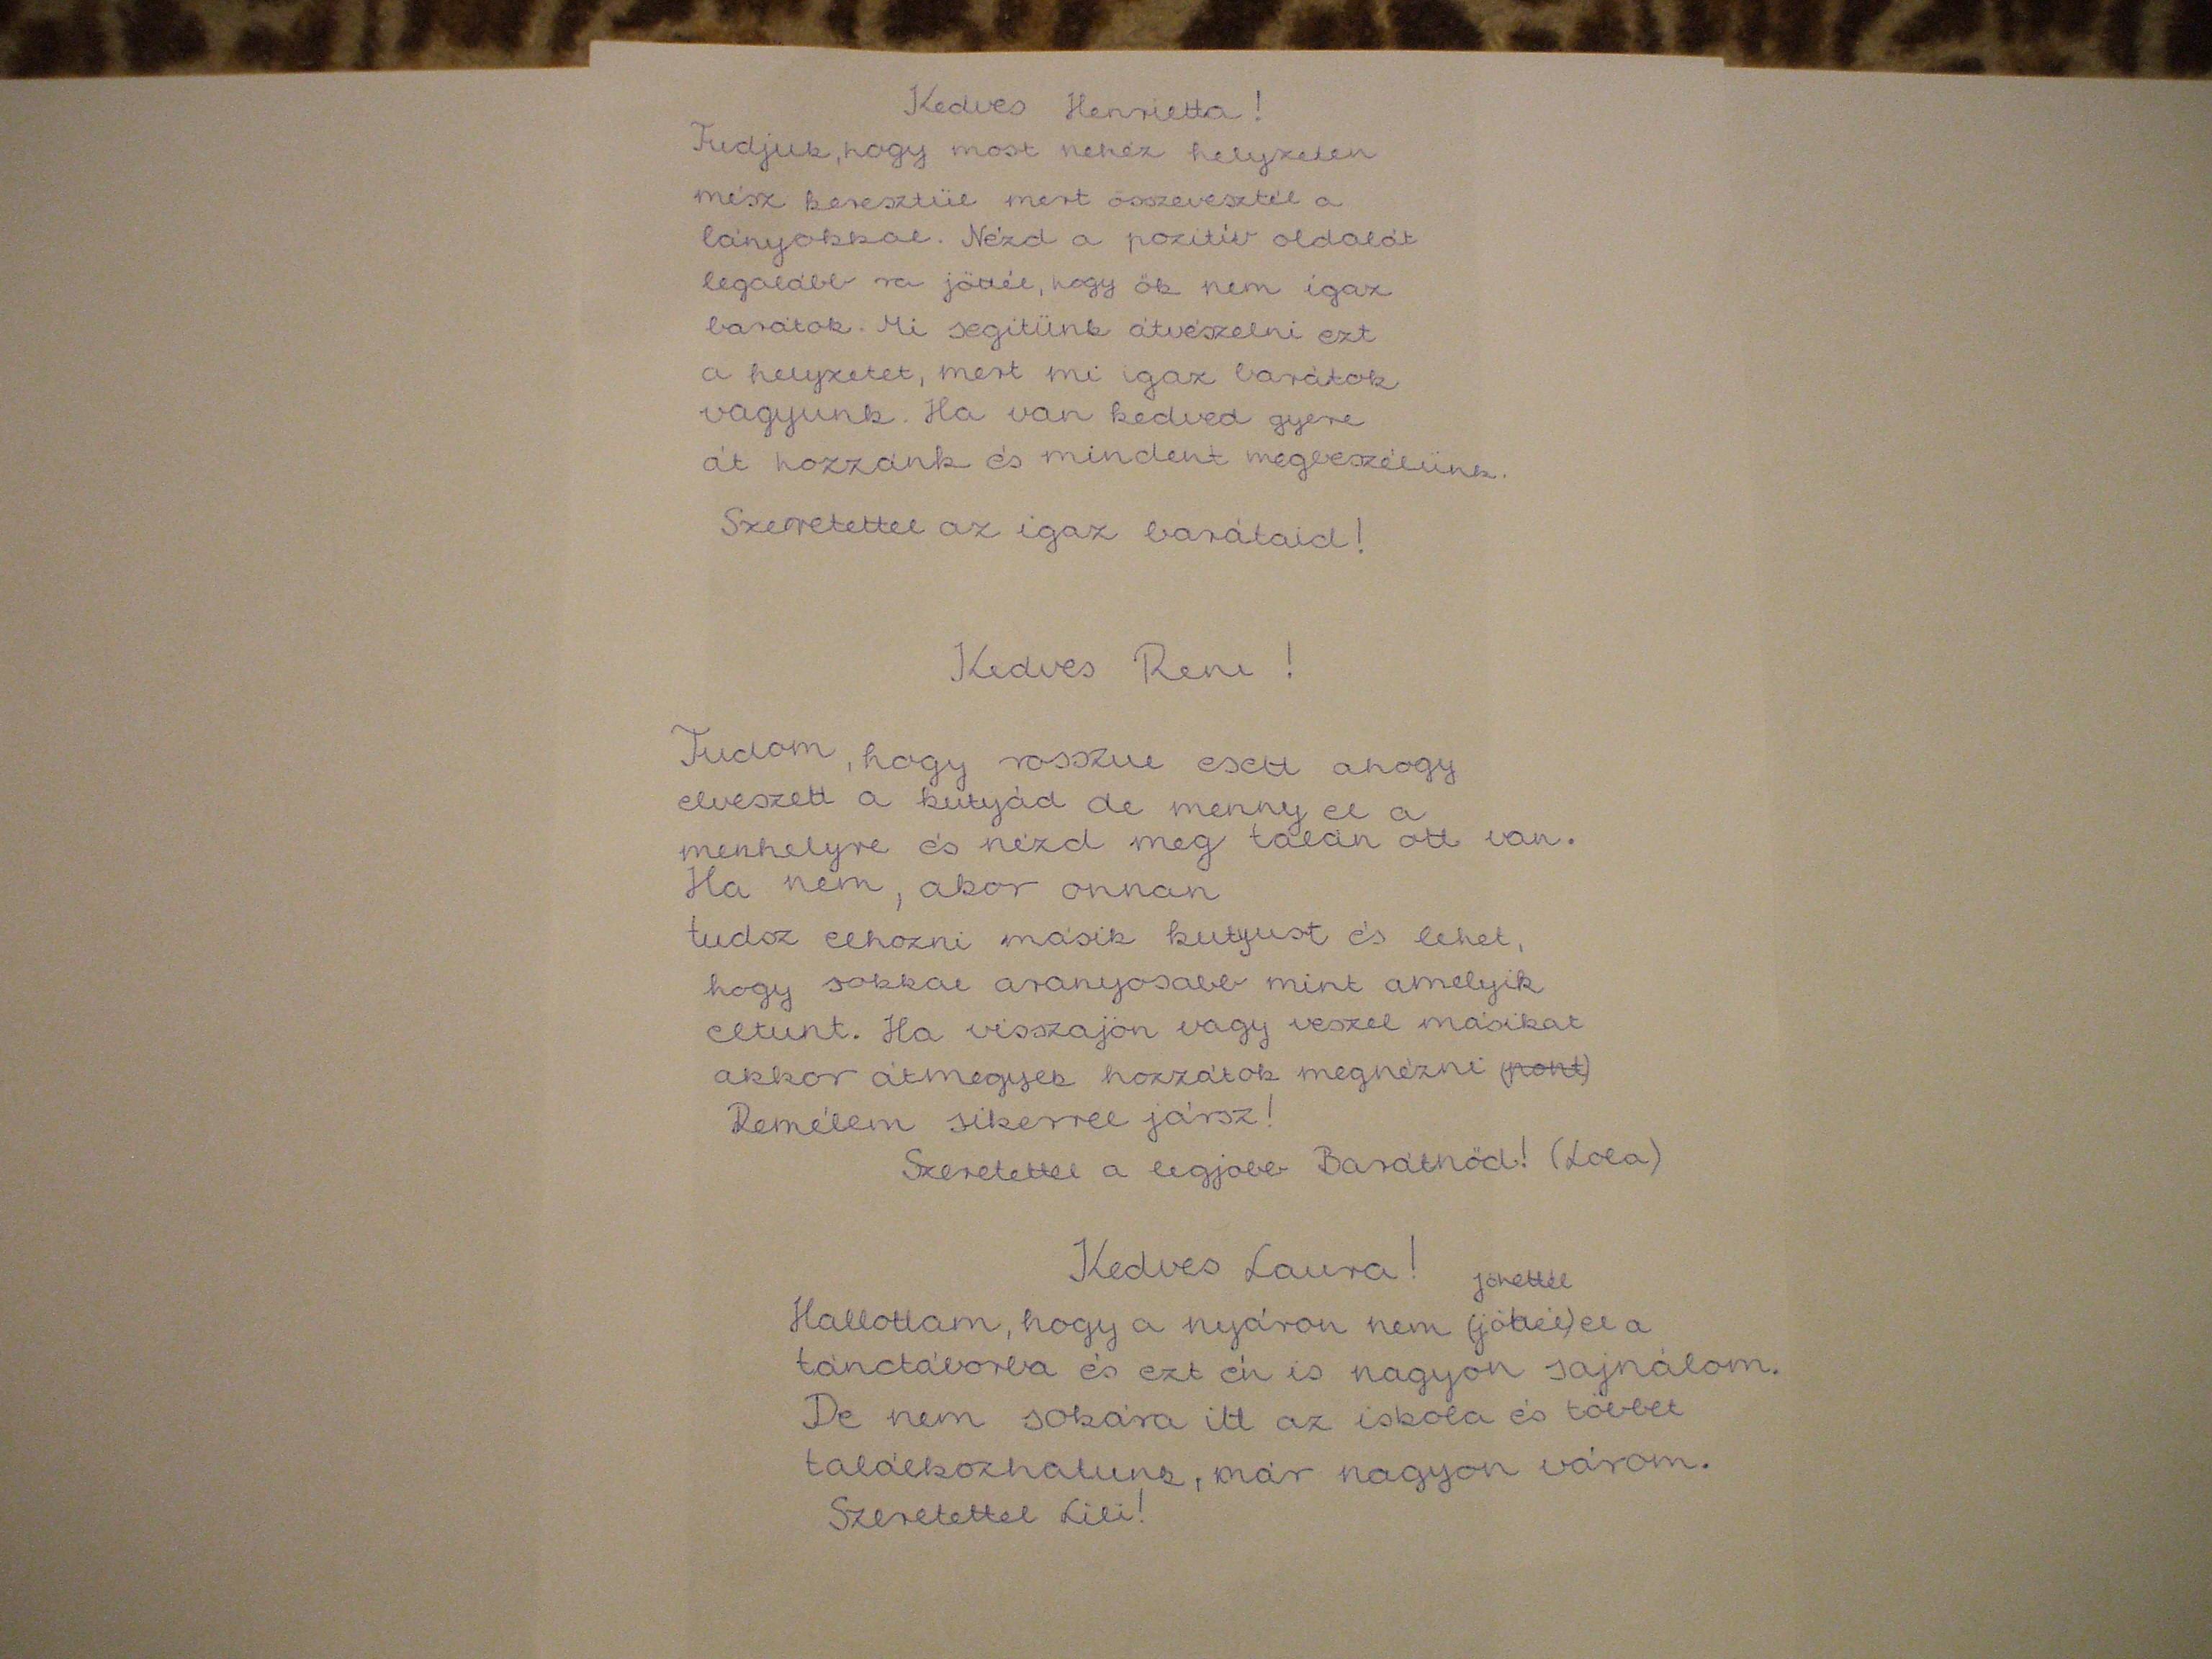 Kedves Henrietta!
Tudjuk, hogy most nehéz helyzeten
mész keresztül mert összevesztél a
lányokkal. Nézd a pozitív oldalát
legalább ra jöttél, hogy ők nem igaz
barátok. Mi segitünk átvészelni ezt
a helyzetet, mert mi igaz barátok
vagyunk. Ha van kedved gyere
át hozzánk és mindent megbeszélünk.
Szeretettel az igaz barátaid!
Kedves Reni !
Tudom, hogy rosszul esett ahogy
elveszett a kutyád de menny el a
menhelyre és nézd meg talán ott van.
Ha nem, akor onnan
tudsz elhozni másik kutyust és lehet,
hogy sokkal aranyosabb mint amelyik
eltunt. Ha visszajön vagy veszel másikat
akkor átmegyek hozzátok megnézni (pont)
Remélem sikerrel jársz!
Szeretettel a legjobb Barátnőd! (Lola)
Kedves Laura!
jöhettél
Hallottam, hogy a nyáron nem (jöttél) el a
tánctáborba és ezt én is nagyon sajnálom.
De nem sokára itt az iskola és többet
találkozhatunk, már nagyon várom.
Szeretettel Lili!